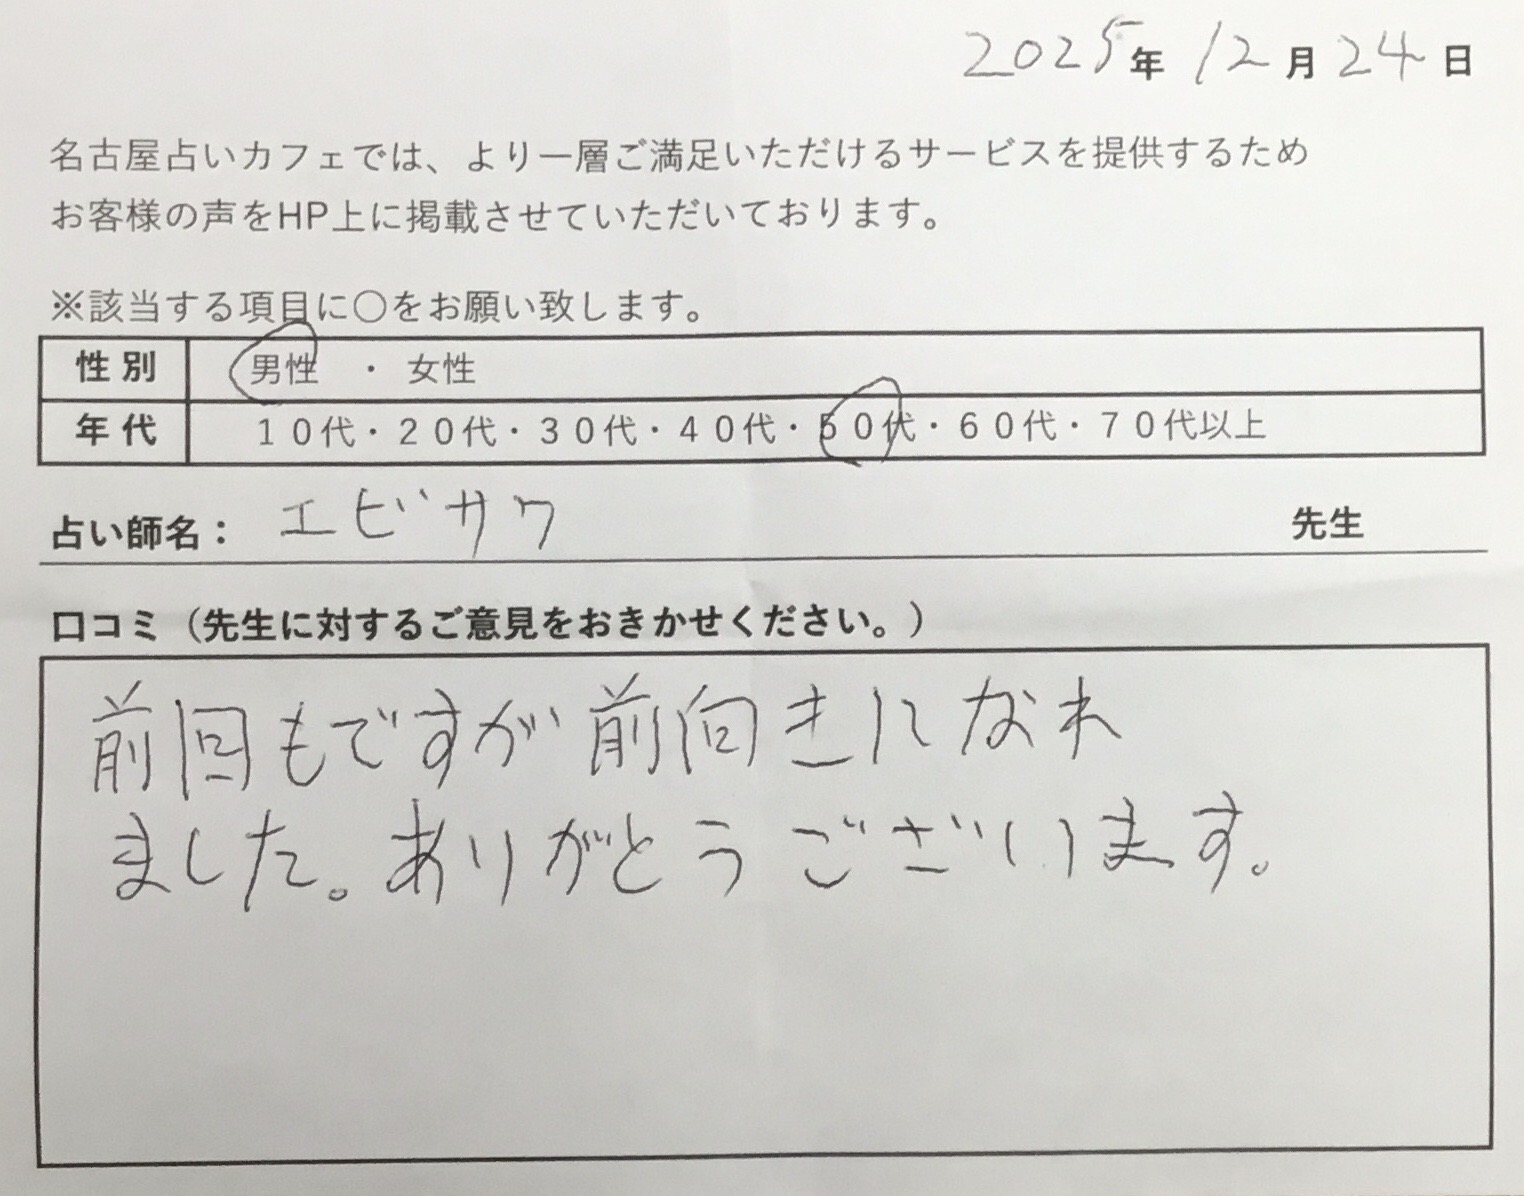 2025年 12月 24日
名古屋占いカフェでは、より一層ご満足いただけるサービスを提供するため
お客様の声をHP上に掲載させていただいております。
※該当する項目に〇をお願い致します。
性別 男性 ・ 女性
年代 10代・20代・30代・40代・50代・60代・70代以上
占い師名： エビサワ 先生
口コミ（先生に対するご意見をおきかせください。）
前回もですが前向きになれ
ました。ありがとうございます。